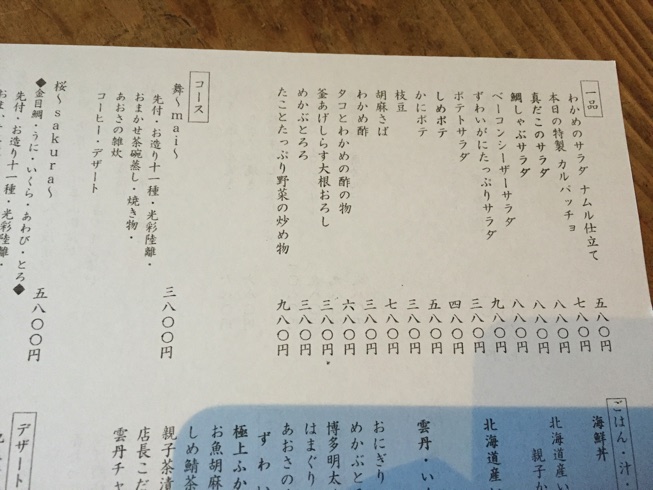 一品
わかめのサラダ ナムル仕立て 五八〇円
本日の特製 カルパッチョ 七八〇円
真だこのサラダ 八八〇円
鯛しゃぶサラダ 八八〇円
ベーコンシーザーサラダ 八八〇円
ずわいがにたっぷりサラダ 九八〇円
ポテトサラダ 三八〇円
しめポテ 四八〇円
かにポテ 五八〇円
枝豆 三八〇円
胡麻さば 七八〇円
わかめ酢 三八〇円
タコとわかめの酢の物 六八〇円
釜あげしらす大根おろし 三八〇円
めかぶとろろ 三八〇円
たことたっぷり野菜の炒め物 九八〇円
コース
舞～mai～ 三八〇〇円
先付・お造り十一種・光彩陸離・
おまかせ茶碗蒸し・焼き物・
あおさの雑炊
コーヒー・デザート
桜～sakura～ 五八〇〇円
◆金目鯛・うに・いくら・あわび・とろ◆
先付・お造り十一種・光彩陸離・
ごはん・汁・
海鮮丼
北海道産い
親子か
北海道産
雲丹・い
おにぎり
めかぶと
博多明太
はまぐり
あおさの
ずわい
極上ふか
お魚胡麻
しめ鯖茶
親子茶漬
店長こだ
雲丹チャ
デザート